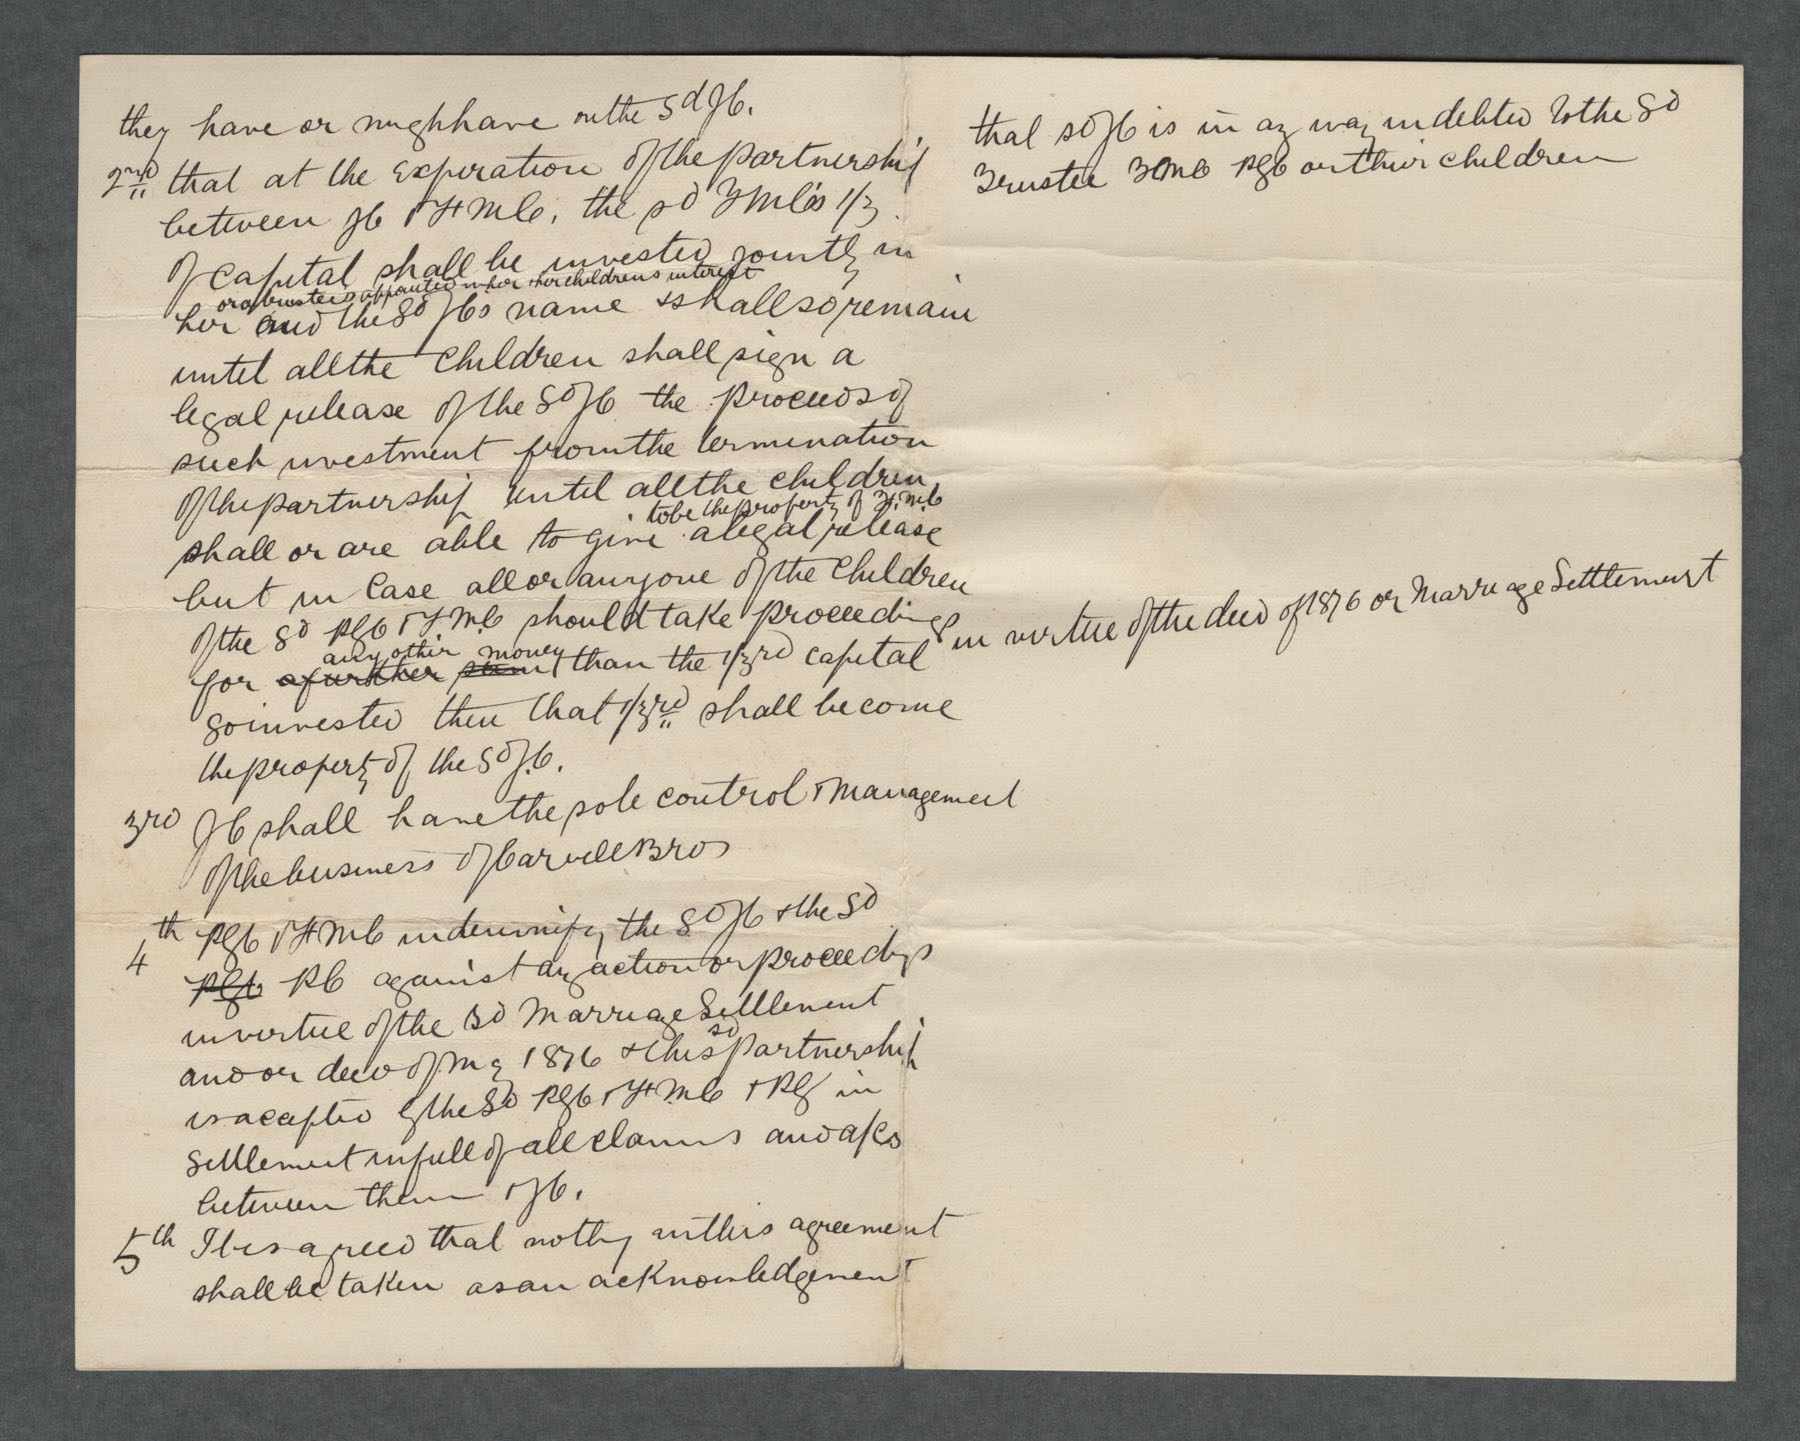 they have or migh have on the Sd JC.
2nd that at the Expiration of the partnership
between JC & HMC. the sd HMCs 1/3
of capital shall be invested jointly in
or a trustee appointed in her & her childrens interest
her and the Sd JCs name & shall so remain
until all the Children shall sign a
legal release of the Sd JC the proceeds of
such investment from the termination
of the partnership until all the children
to be the property of H.M.C
shall or are able to give a legal release
but in Case all or any one of the Children
of the Sd RGC & HMC should take proceedings in virtue of the deed of 1876 or Marriage Settlement
any other money
for a further sum than the 1/3rd capital
so invested then that 1/3rd shall become
the property of the Sd J.C.
3rd JC shall have the sole control & management
of the business of Carvell Bros
4th RGC & HMC indemnify the Sd JC & the Sd
RGC RC against ay action or proceedgs
in virtue of the Sd Marriage Settlement
and or deed of My 1876 & this
sd
partnership
is accepted by the Sd RGC & HMC & RG in
Settlement in full of all claims and a/cs
between them & JC.
5th It is agreed that nothg in this agreement
shall be taken as an acknowledgement
that sd JC is in ay way indebted to the Sd
Trustee HMC RGC or their children